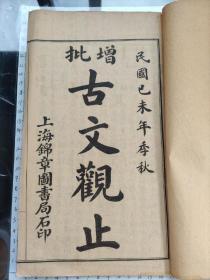 民國己未年季秋
增批
古文觀止
上海錦章圖書局石印